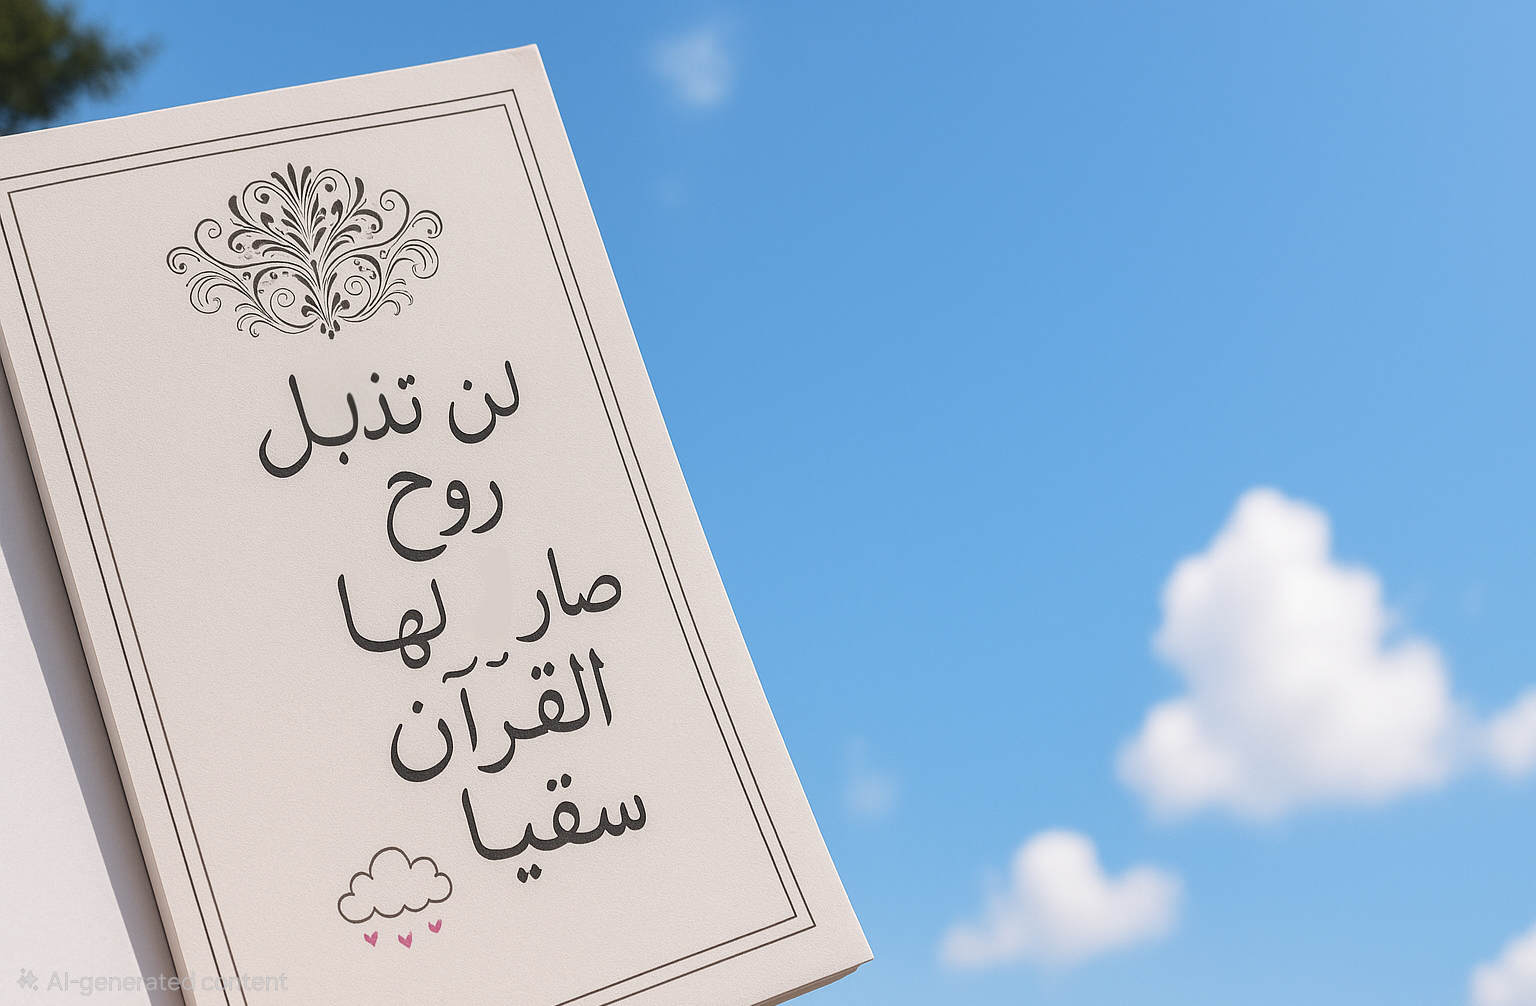 لن تذبل
روح
صار لها
القرآن
سقيا
AI-generated content